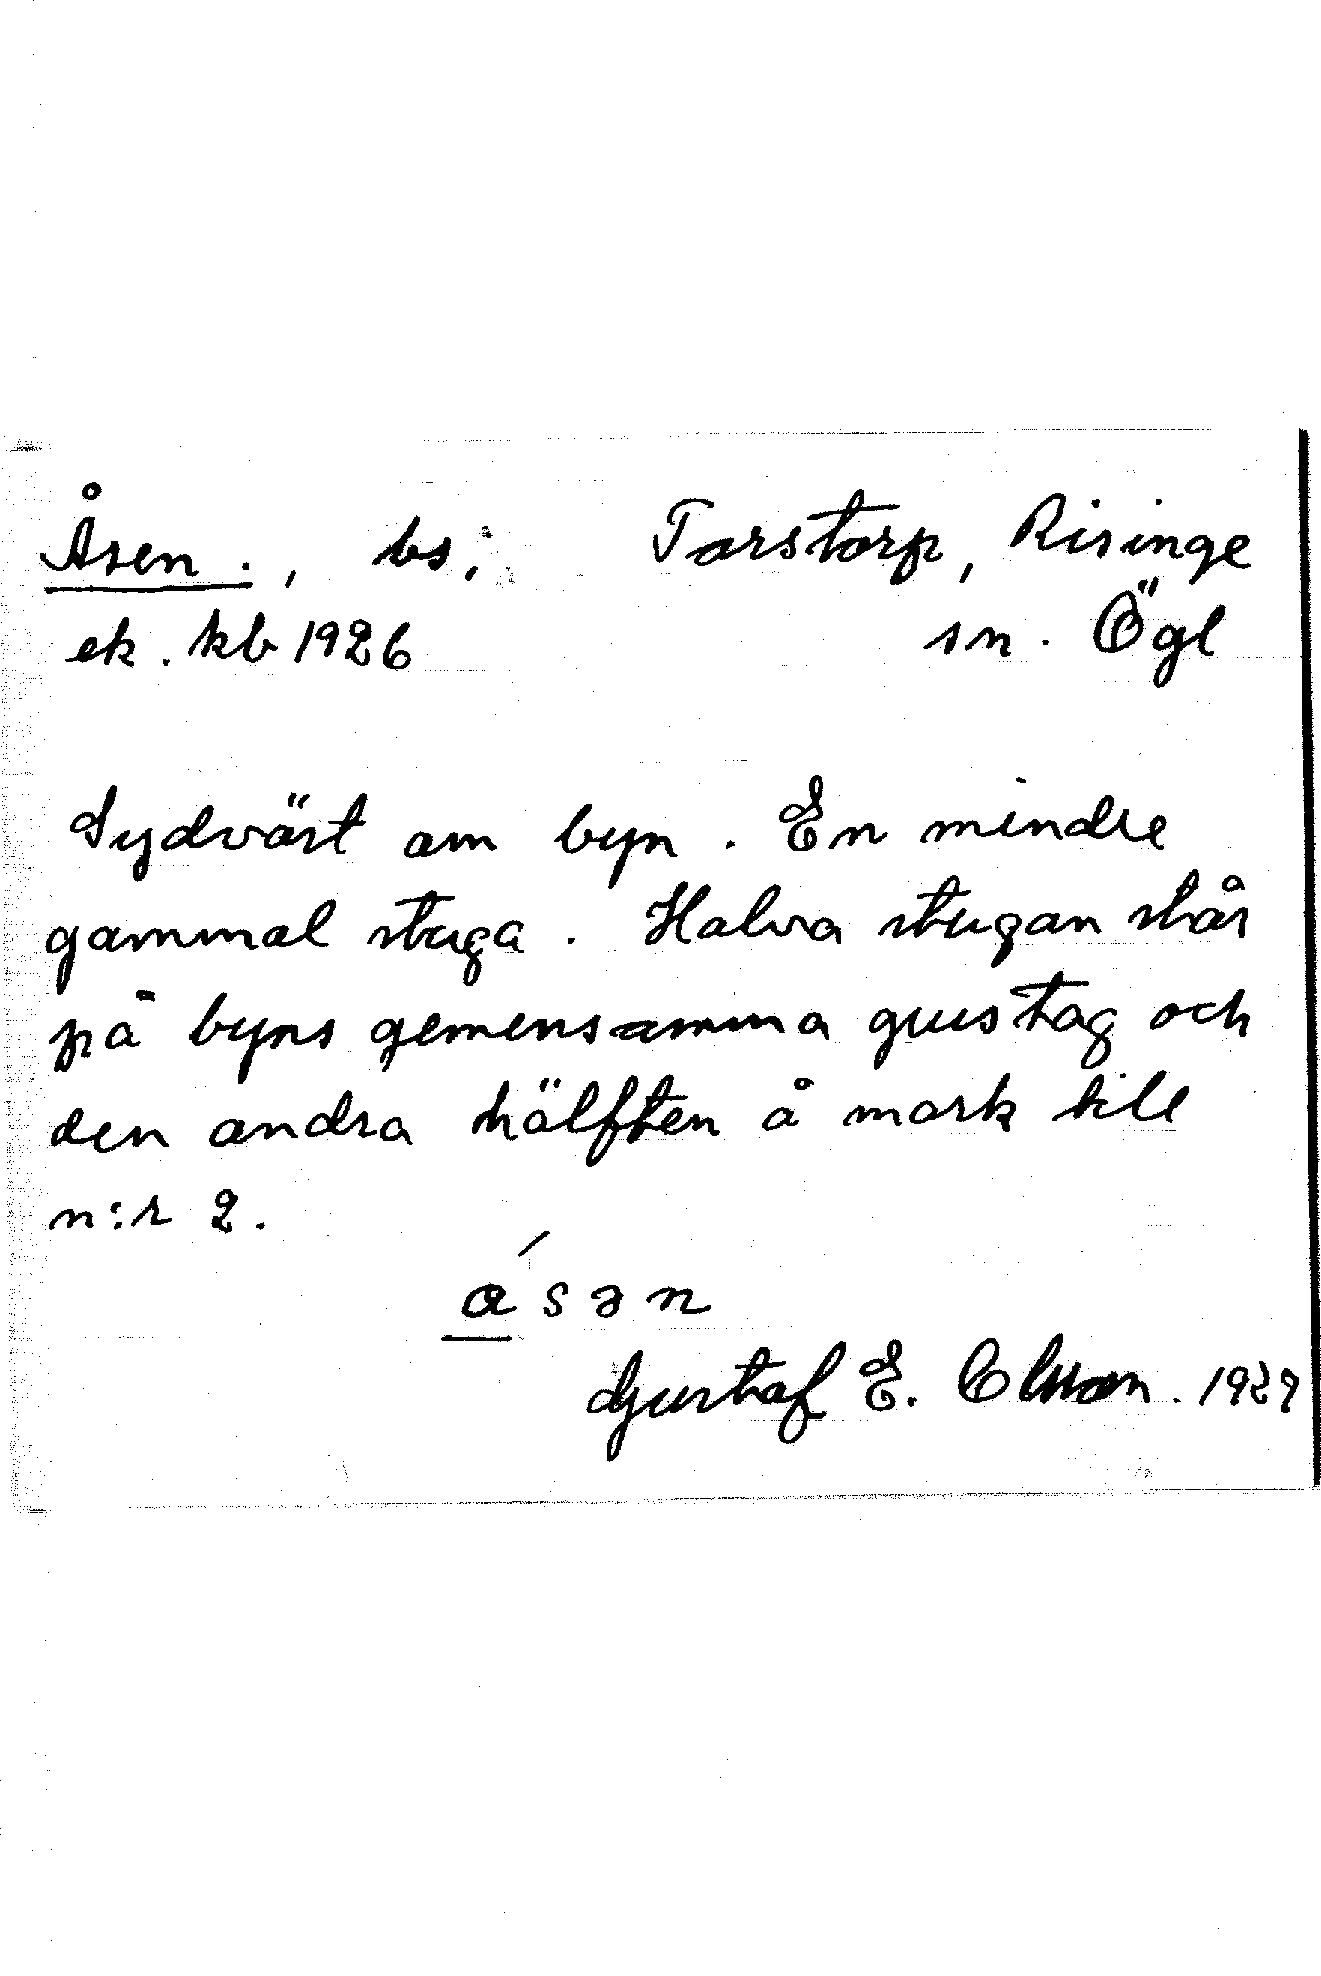 Åsen., bs; Torstorp, Risinge
ek. kb 1926 sn. Ögl
Sydväst om byn. En mindre
gammal stuga. Halva stugan står
på byns gemensamma grustag och
den andra hälften å mark till
n:r 2.
ɑ́sən
Gustaf E. Olsson. 1929